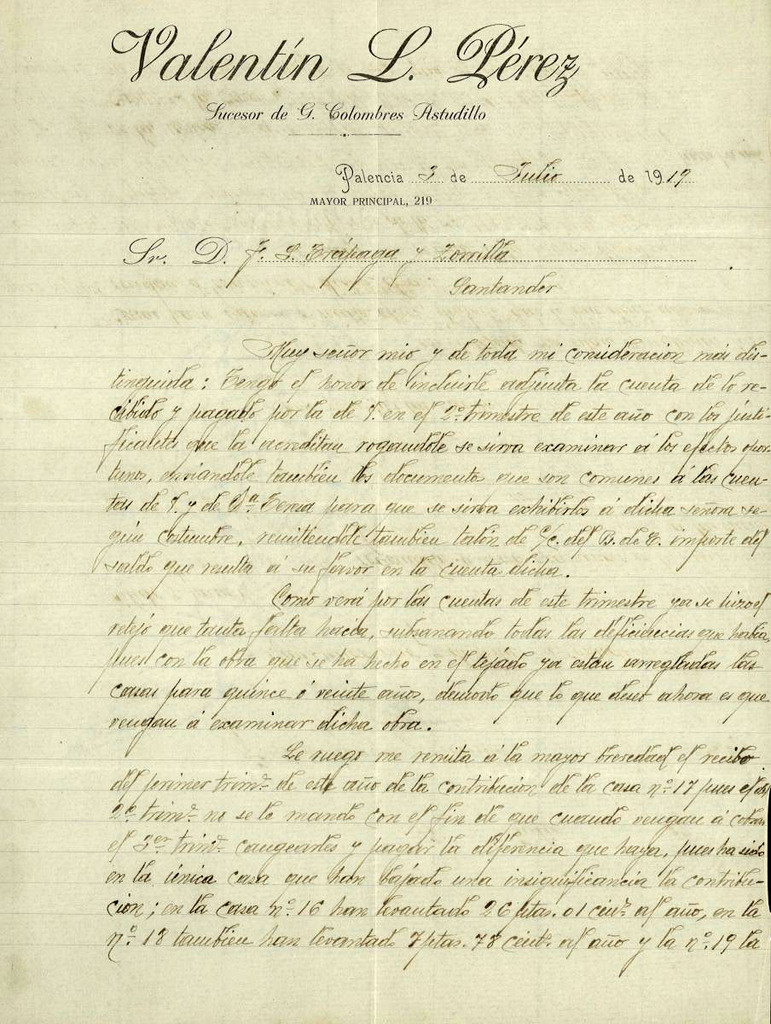 Valentín L. Pérez
Sucesor de G. Colombres Astudillo
Palencia 3 de Julio de 1919
MAYOR PRINCIPAL, 219
Sr. D. F. S. Trápaga y Zorrilla
Santander
Muy señor mio y de toda mi consideracion mas dis-
tinguida: Tengo el honor de incluirle adjunta la cuenta de lo re-
cibido y pagado por la de V. en el 2º trimestre de este año con los justi-
ficantes que la acreditan rogandole se sirva examinar á los efectos opor-
tunos, enviandole tambien los documentos que son comunes á las cuen-
tas de V. y de Dª Teresa para que se sirva exhibirlos á dicha señora se-
gún costumbre, remitiendole tambien talón de c/c. del B. de E. importe del
saldo que resulta á su favor en la cuenta dicha.
Como verá por las cuentas de este trimestre ya se hizo el
retejo que tanta falta hacia, subsanando todas las deficiencias que habia,
pues con la obra que se ha hecho en el tejado ya estan arregladas las
casas para quince ó veinte años, demodo que lo que deseo ahora es que
vengan á examinar dicha obra.
Le ruego me remita á la mayor brevedad el recibo
del primer trimº de este año de la contribucion de la casa nº 17 pues el del
2º trimº no se lo mando con el fin de que cuando vengan á cobrar
el 3er trimº cangearles y pagar la diferencia que haya, pues ha sido
en la única casa que han bajado una insignificancia la contribu-
cion; en la casa nº 16 han levantado 26 ptas. 01 centº al año, en la
nº 18 tambien han levantado 7 ptas. 78 centº al año y la nº 19 la